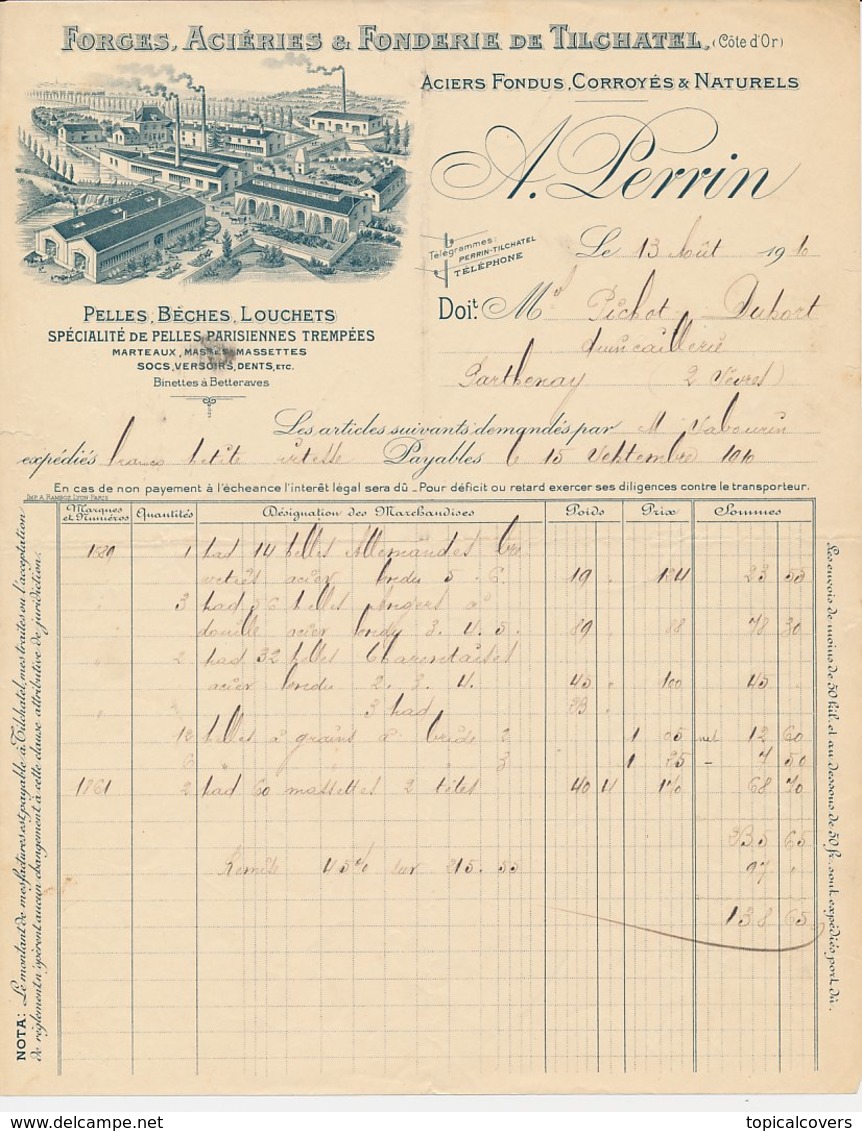 FORGES, ACIÉRIES & FONDERIE DE TILCHATEL, (Côte d'Or)
ACIERS FONDUS, CORROYÉS & NATURELS
A. Perrin
Télégrammes:
PERRIN-TILCHATEL
TÉLÉPHONE
Le 13 Août 1910
PELLES, BÊCHES, LOUCHETS
SPÉCIALITÉ DE PELLES PARISIENNES TREMPÉES
MARTEAUX, MASSES, MASSETTES
SOCS, VERSOIRS, DENTS, ETC.
Binettes à Betteraves
Doit M Pichot Duport
quincaillerie
Parthenay (2 Sèvres)
Les articles suivants demandés par M Sabourin
expédiés franco petite vitesse Payables le 15 Septembre 1910
En cas de non payement à l'écheance l'interêt légal sera dû _ Pour déficit ou retard exercer ses diligences contre le transporteur.
IMP. A. RAMBOZ, LYON-PARIS
Marques et Numéros Quantités Désignation des Marchandises Poids Prix Sommes
1 paq 14 pelles Allemandes
acier fondu 5. 6. 19 " 124 23 55
" 3 paq 56 pelles Angers à
douille acier fondu 3. 4. 5. 89 88 78 30
" 2 paq 32 pelles Charentaises
acier fondu 2. 3. 4. 45 " 100 45 "
" 3 paq "
12 pelles à grains à bride 2 1 05 net 12 60
6 " " " 3 1 25 _ 7 50
1861 2 paq 60 massettes 2 têtes 40 4 170 68 70
235 65
Remise 45% sur 215.55 97 "
138 65
NOTA: Le montant de mes factures est payable à Tilchatel, mes traites ou l'acceptation
de règlement n'opèrent aucun changement à cette clause attributive de juridiction.
Les envois de moins de 50 kil. et au dessous de 50 fr. sont expédiés port dû.
www.delcampe.net topicalcovers